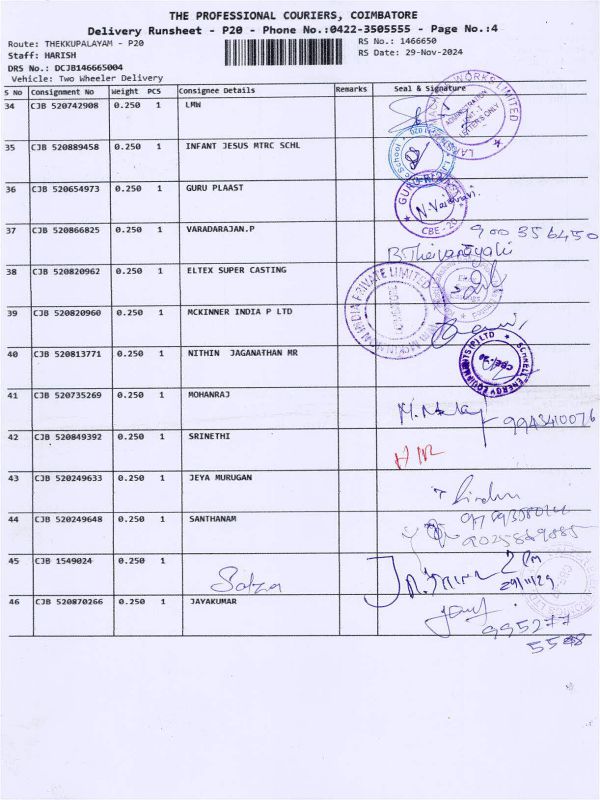 THE PROFESSIONAL COURIERS, COIMBATORE
Delivery Runsheet - P20 - Phone No.:0422-3505555 - Page No.:4
Route: THEKKUPALAYAM - P20 RS No.: 1466650
Staff: HARISH RS Date: 29-Nov-2024
DRS No.: DCJB146665004
Vehicle: Two Wheeler Delivery
S No Consignment No Weight PCS Consignee Details Remarks Seal & Signature
34 CJB 520742908 0.250 1 LMW
ADMINISTRATION UNIT-1 LETTERS ONLY
35 CJB 520889458 0.250 1 INFANT JESUS MTRC SCHL
36 CJB 520654973 0.250 1 GURU PLAAST
CBE - 20
37 CJB 520866825 0.250 1 VARADARAJAN.P
38 CJB 520820962 0.250 1 ELTEX SUPER CASTING
39 CJB 520820960 0.250 1 MCKINNER INDIA P LTD
40 CJB 520813771 0.250 1 NITHIN JAGANATHAN MR
SCHNELL ENERGY EQUIPMENTS (P) LTD
CBE-20
41 CJB 520735269 0.250 1 MOHANRAJ
9943410076
42 CJB 520849392 0.250 1 SRINETHI
43 CJB 520249633 0.250 1 JEYA MURUGAN
44 CJB 520249648 0.250 1 SANTHANAM
45 CJB 1549024 0.250 1
46 CJB 520870266 0.250 1 JAYAKUMAR
995277